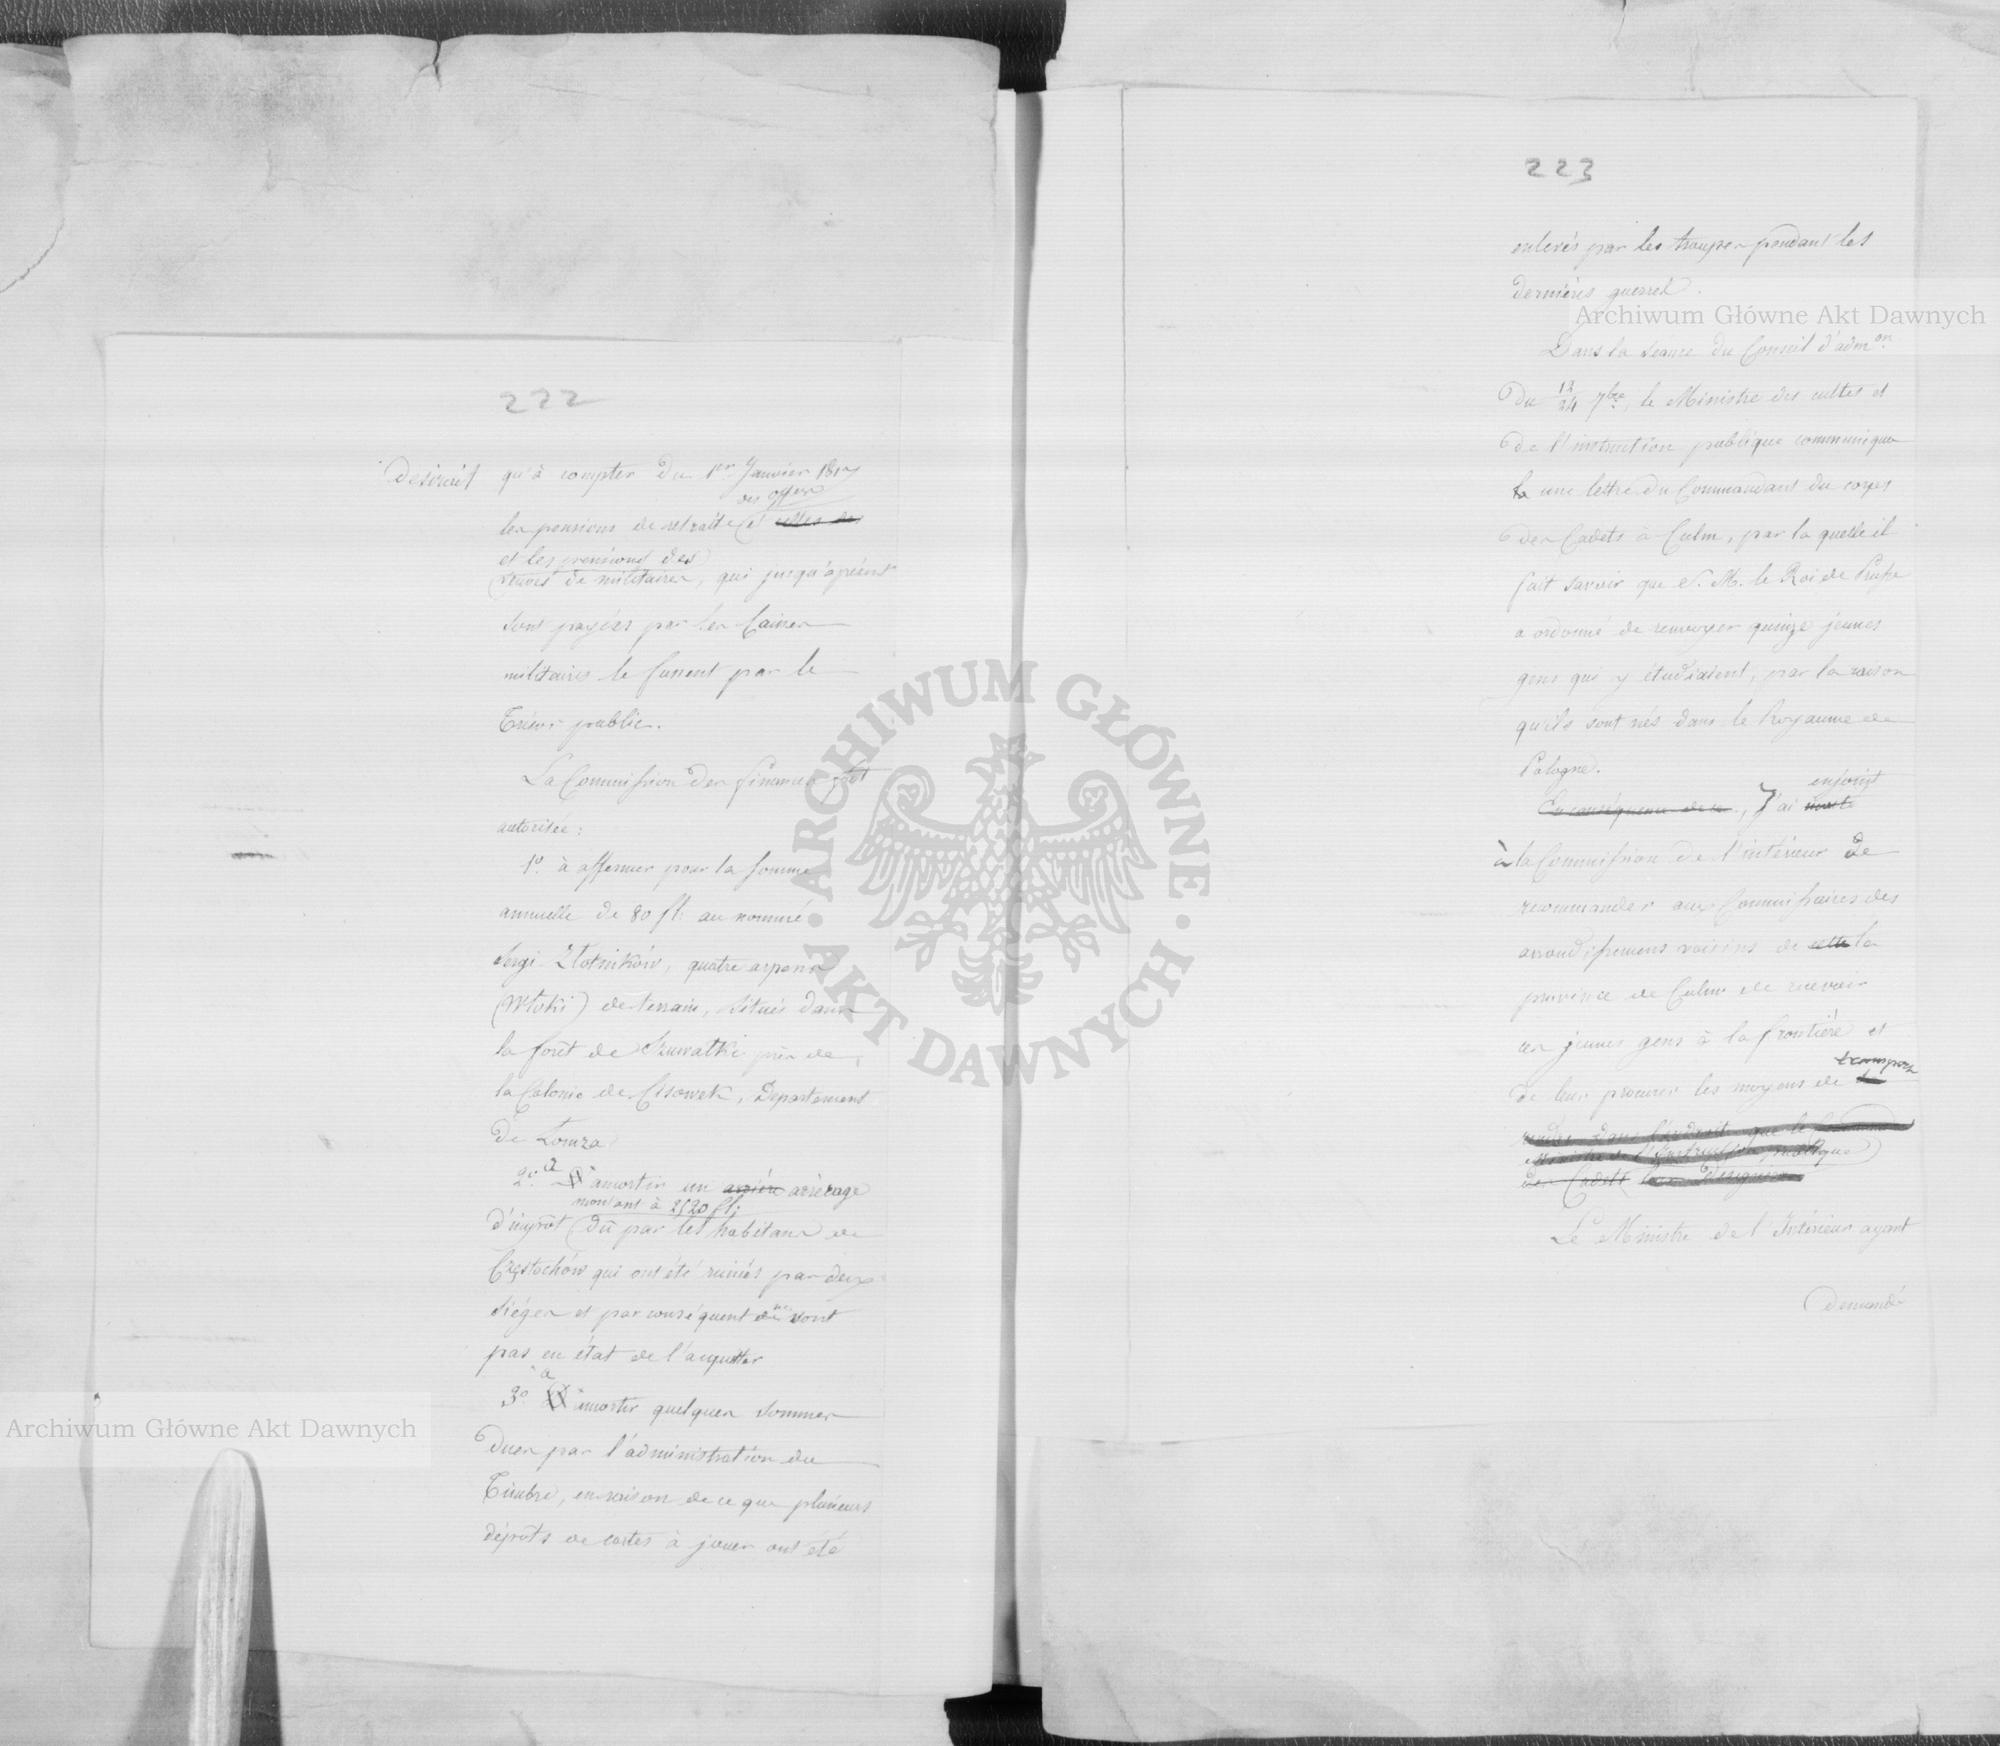 222
desirait qu'à compter du 1er Janvier 1817
des offers
les pensions de retraite et celles des
et les pensions des
veuves de militaires, qui jusqu'à présent
sont payées par les Caisses
militaires le fussent par le
Trésor public.
La Commission des finances fut
autorisée:
1º. à affermer pour la somme
annuelle de 80 fl. au nommé
Sergi Zlotników, quatre arpens
(Włoki) de terrain, situés dans
la forêt de Szuwałki près de
la Colonie de Cisowek, Departement
de Łomza
2º. à amortir un arriéré arrérage
montant à 2520 fl;
d'impôt dû par les habitans de
Częstochów qui ont été ruinés par deux
sièges et par conséquent ne sont
pas en état de l'acquitter
3º. à amortir quelques sommes
dues par l'administration du
Timbre, en raison de ce que plusieurs
dépôts de cartes à jouer ont été
223
enlevés par les troupes pendant les
dernières guerres.
Dans la séance du Conseil d'admon.
du 12/24 7bre, le Ministre des cultes et
de l'instruction publique communiqua
une lettre du Commandant du corps
des Cadets à Culm, par la quelle il
fait savoir que S. M. le Roi de Prusse
a ordonné de renvoyer quinze jeunes
gens qui y étudiaient, par la raison
qu'ils sont nés dans le Royaume de
Pologne.
enjoint
En conséquence de ce, J'ai
à la Commission de l'intérieur de
recommander aux Commissaires des
arrondissemens voisins de cette la
province de Culm de recevoir
ces jeunes gens à la frontière et
transport
de leur procurer les moyens de se
rendre dans l'endroit que le
Ministre de l'Instruction publique
des Cadets leur designera
Le Ministre de l'Intérieur ayant
demandé
Archiwum Główne Akt Dawnych
Archiwum Główne Akt Dawnych
ARCHIWUM GŁÓWNE · AKT DAWNYCH ·